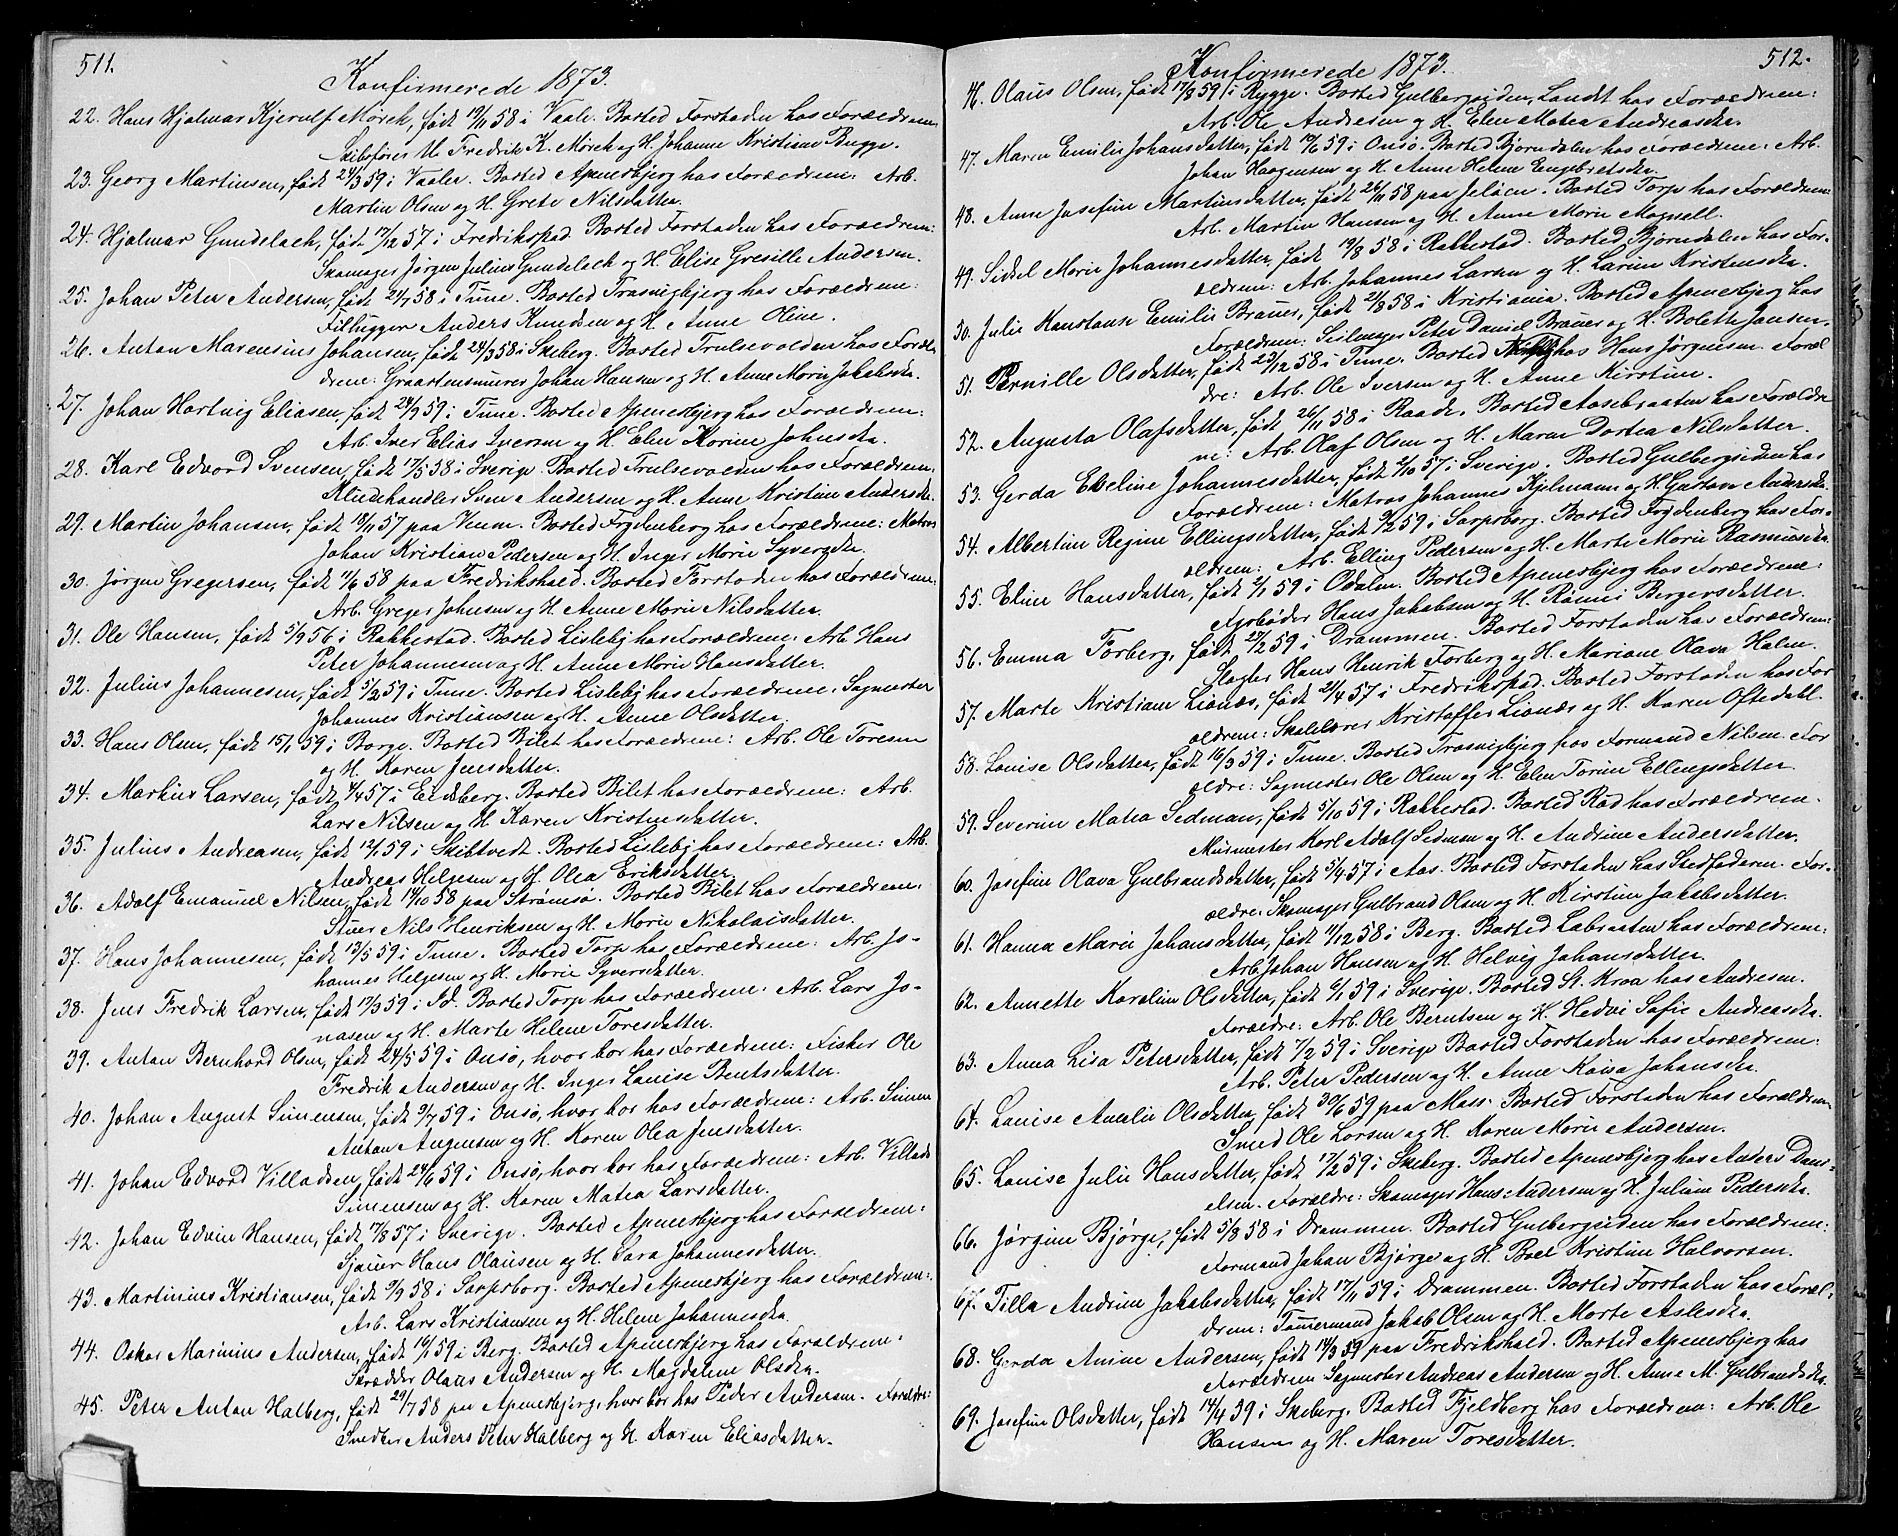 511.
Konfirmerede 1873.
22. Hans Hjalmar Kjerulf Mörch, født 19/11 58 i Vaale. Bosted Forstaden hos Forældrene:
Skibsfører M. Fredrik K. Mörch og H. Johanne Kristiane Bugge.
23. Georg Martinsen, født 24/3 59 i Vaaler. Bosted Apenesbjerg hos Forældrene: Arb.
Martin Olsen og H. Grete Nilsdatter.
24. Hjalmar Gundelach, født 17/12 57 i Fredrikstad. Bosted Forstaden hos Forældrene:
Skomager Jørgen Julius Gundelach og H. Elise Gresille Andersen.
25. Johan Peter Andersen, født 21/7 58 i Tune. Bosted Trosvigbjerg hos Forældrene:
Tilhugger Anders Knudsen og H. Anne Oline.
26. Anton Marensius Johansen, født 24/3 58 i Skeberg. Bosted Trulsevolden hos Foræl-
drene: Johan Hansen og H. Anne Marie Jakobsda.
27. Johan Hartvig Eliasen, født 24/9 59 i Tune. Bosted Apenesbjerg hos Forældrene:
Arb. Iver Elias Iversen og H. Elen Korine Johnsda.
28. Karl Edvard Svensen, født 17/5 58 i Sverige. Bosted Trulsevolden hos Forældrene:
Kludehandler Sven Andersen og H. Anne Kristine Andersda.
29. Martin Johansen, født 18/11 57 paa Venem. Bosted Frydenberg hos Forældrene: Matros
Johan Kristian Pedersen og H. Inger Marie Syversda.
30. Jørgen Gregersen, født 11/6 58 paa Fredrikshald. Bosted Forstaden hos Forældrene:
Arb. Greger Johnsen og H. Anne Marie Nilsdatter.
31. Ole Hansen, født 5/9 56 i Rakkestad. Bosted Lisleby hos Forældrene: Arb. Hans
Peter Johannesen og H. Anne Marie Hansdatter.
32. Julius Johannesen, født 5/2 59 i Tune. Bosted Lisleby hos Forældrene: Sagmester
Johannes Kristiansen og H. Anne Olsdatter.
33. Hans Olsen, født 15/1 59 i Borge. Bosted Bilet hos Forældrene: Arb. Ole Toresen
og H. Karen Jensdatter.
34. Markus Larsen, født 1/4 57 i Eidsberg. Bosted Bilet hos Forældrene: Arb.
Lars Nilsen og H. Karen Kristensdatter.
35. Julius Andreasen, født 12/1 59 i Skibtvedt. Bosted Lisleby hos Forældrene: Arb.
Andreas Helgesen og H. Olea Eriksdatter.
36. Adolf Emanuel Nilsen, født 14/10 58 paa Strømsø. Bosted Bilet hos Forældrene:
Stuer Nils Henriksen og H. Marie Nikolaisdatter.
37. Hans Johannesen, født 13/5 59 i Tune. Bosted Torp hos Forældrene: Arb. Jo-
hannes Helgesen og H. Marie Syversdatter.
38. Jens Fredrik Larsen, født 17/3 59 i Id. Bosted Torp hos Forældrene: Arb. Lars Jo-
nasen og H. Marte Helene Toresdatter.
39. Anton Bernhard Olsen, født 24/5 59 i Onsø, hvor bor hos Forældrene: Fisker Ole
Fredrik Andersen og H. Inger Louise Bentsdatter.
40. Johan August Simensen, født 9/7 59 i Onsø, hvor bor hos Forældrene: Arb. Simen
Anton Augensen og H. Karen Olea Jensdatter.
41. Johan Edvard Villadsen, født 24/6 59 i Onsø, hvor bor hos Forældrene: Arb. Villads
Simensen og H. Karen Matea Larsdatter.
42. Johan Edvin Hansen, født 17/8 57 i Sverige. Bosted Apenesbjerg hos Forældrene:
Sjauer Hans Olausen og H. Sara Johannesdatter.
43. Martinius Kristiansen, født 9/9 58 i Sarpsborg. Bosted Apenesbjerg hos Forældrene:
Arb. Lars Kristiansen og H. Helene Johannesda.
44. Oskar Marinius Andersen, født 16/1 59 i Berg. Bosted Apenesbjerg hos Forældrene:
Skrædder Olaus Andersen og H. Magdalene Olsda.
45. Peter Anton Halberg, født 29/7 58 paa Apenesbjerg, hvor bor hos Peder Andersen. Forældre:
Snedker Anders Peter Halberg og H. Karen Eliasdatter.
512.
Konfirmerede 1873.
46. Olaus Olsen, født 17/8 59 i Rygge. Bosted Gulbergsiden, Landet hos Forældrene:
Arb. Ole Andresen og H. Elen Matea Andreasda.
47. Maren Emilie Johansdatter, født 10/6 59 i Onsø. Bosted Bjørndalen hos Forældrene: Arb.
Johan Haagensen og H. Anne Helene Engebretsda.
48. Anne Josefine Martinsdatter, født 26/11 58 paa Jeløen. Bosted Torp hos Forældrene:
Arb. Martin Hansen og H. Anne Marie Magnell.
49. Sidsel Marie Johannesdatter, født 19/8 58 i Rakkestad. Bosted Bjørndalen hos For-
ældrene: Arb. Johannes Larsen og H. Larine Kristensda.
50. Julie Konstanse Emilie Brauer, født 2/8 58 i Kristiania. Bosted Apenesbjerg hos
Forældrene: Peter Daniel Brauer og H. Bolette Jansen.
51. Pernille Olsdatter, født 23/12 58 i Tune. Bosted hos Hans Jørgensen. Foræl-
dre: Arb. Ole Iversen og H. Anne Kirstine.
52. Augusta Olafsdatter, født 26/11 58 i Raade. Bosted Aasebraaten hos Forældre-
ne: Arb. Olaf Olsen og H. Maren Dortea Nilsdatter.
53. Gerda Eveline Johannesdatter, født 2/10 57 i Sverige. Bosted Gulbergsiden hos
Forældrene: Matros Johannes Kjelmann og H. Gustava Andersda.
54. Albertine Regine Ellingsdatter, født 9/2 59 i Sarpsborg. Bosted Frydenberg hos For-
ældrene: Arb. Elling Pedersen og H. Marte Marie Rasmusda.
55. Eline Hansdatter, født 2/1 59 i Odalen. Bosted Apenesbjerg hos Forældrene:
Fyrbøder Hans Jakobsen og H. Rønnei Bergersdatter.
56. Emma Forberg, født 27/2 59 i Drammen. Bosted Forstaden hos Forældrene:
Slagter Hans Henrik Forberg og H. Mariane Olava Holm.
57. Marte Kristiane Lionæs, født 21/4 57 i Fredrikstad. Bosted Forstaden hos For-
ældrene: Skolelærer Kristoffer Lionæs og H. Karen Oftedahl.
58. Louise Olsdatter, født 16/3 59 i Tune. Bosted Trosvigbjerg hos Formand Nilsen. For-
ældre: Sagmester Ole Olsen og H. Elen Torine Ellingsdatter.
59. Severine Matea Sedman, født 5/10 59 i Rakkestad. Bosted Rød hos Forældrene:
Murmester Karl Adolf Sedman og H. Andrine Andersdatter.
60. Josefine Olava Gulbrandsdatter, født 5/4 57 i Aas. Bosted Forstaden hos Stedfaderen. For-
ældre: Skomager Gulbrand Olsen og H. Kirstine Jakobsdatter.
61. Hanna Marie Johansdatter, født 11/12 58 i Berg. Bosted Labraaten hos Forældrene:
Arb. Johan Hansen og H. Helvig Johansdatter.
62. Annette Karoline Olsdatter, født 6/1 59 i Sverige. Bosted St. Kroa hos Andresen.
Forældre: Arb. Ole Berntsen og H. Hedvi Sofie Andreasda.
63. Anna Lisa Petersdatter, født 7/2 59 i Sverige Bosted Forstaden hos Forældrene:
Arb. Peter Pedersen og H. Anne Kaisa Johansda.
64. Louise Amalie Olsdatter, født 30/6 59 paa Moss. Bosted Forstaden hos Forældrene:
Smed Ole Larsen og H. Karen Marie Andersen.
65. Louise Julie Hansdatter, født 17/2 59 i Skeberg. Bosted Apenesbjerg hos Anders Dani-
elsen. Forældre: Skomager Hans Andersen og H. Juliane Pedersda.
66. Jørgine Bjørge, født 5/8 58 i Drammen. Bosted Gulbergsiden hos Forældrene:
Formand Johan Bjørge og H. Boel Kristine Halvorsen.
67. Tilla Andrine Jakobsdatter, født 17/11 59 i Drammen. Bosted Forstaden hos Foræl-
drene: Tømmermand Jakob Olsen og H. Marte Aslesda.
68. Gerda Amine Andersen, født 14/3 59 paa Fredrikshald. Bosted Apenesbjerg hos
Forældrene Sagmester Andreas Andersen og H. Anne M. Gulbrandsda.
69. Josefine Olsdatter, født 14/4 39 i Skeberg. Bosted Fjeldberg hos Forældrene: Arb. Ole
Hansen og H. Maren Toresdatter.